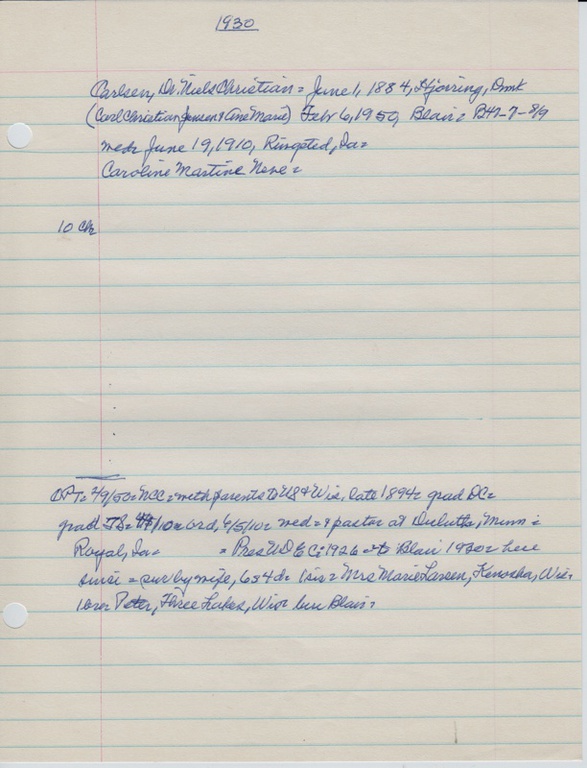 1930
Carlsen, Dr. Niels Christian = June 1, 1884, Hjorring, Dmk
(Carl Christian Jensen & Ane Marie) Feb 6, 1950, Blair = B47-7-8/9
med = June 19, 1910, Ringsted, Ia =
Caroline Martine Neve =
10 Ch
OPT = 2/9/50 = NCC = with parents to US & Wis, late 1894 = grad DC =
grad TS = /10 = ord, 6/5/10 = med = & pastor at Duluth, Minn =
Royal, Ia = = Pres UDELC = 1926 = to Blair 1930 = here
since = sur by wife, 6s4d = 1 sis = Mrs Marie Larsen, Kenosha, Wis =
1 bro = Peter, Three Lakes, Wis = bur Blair =